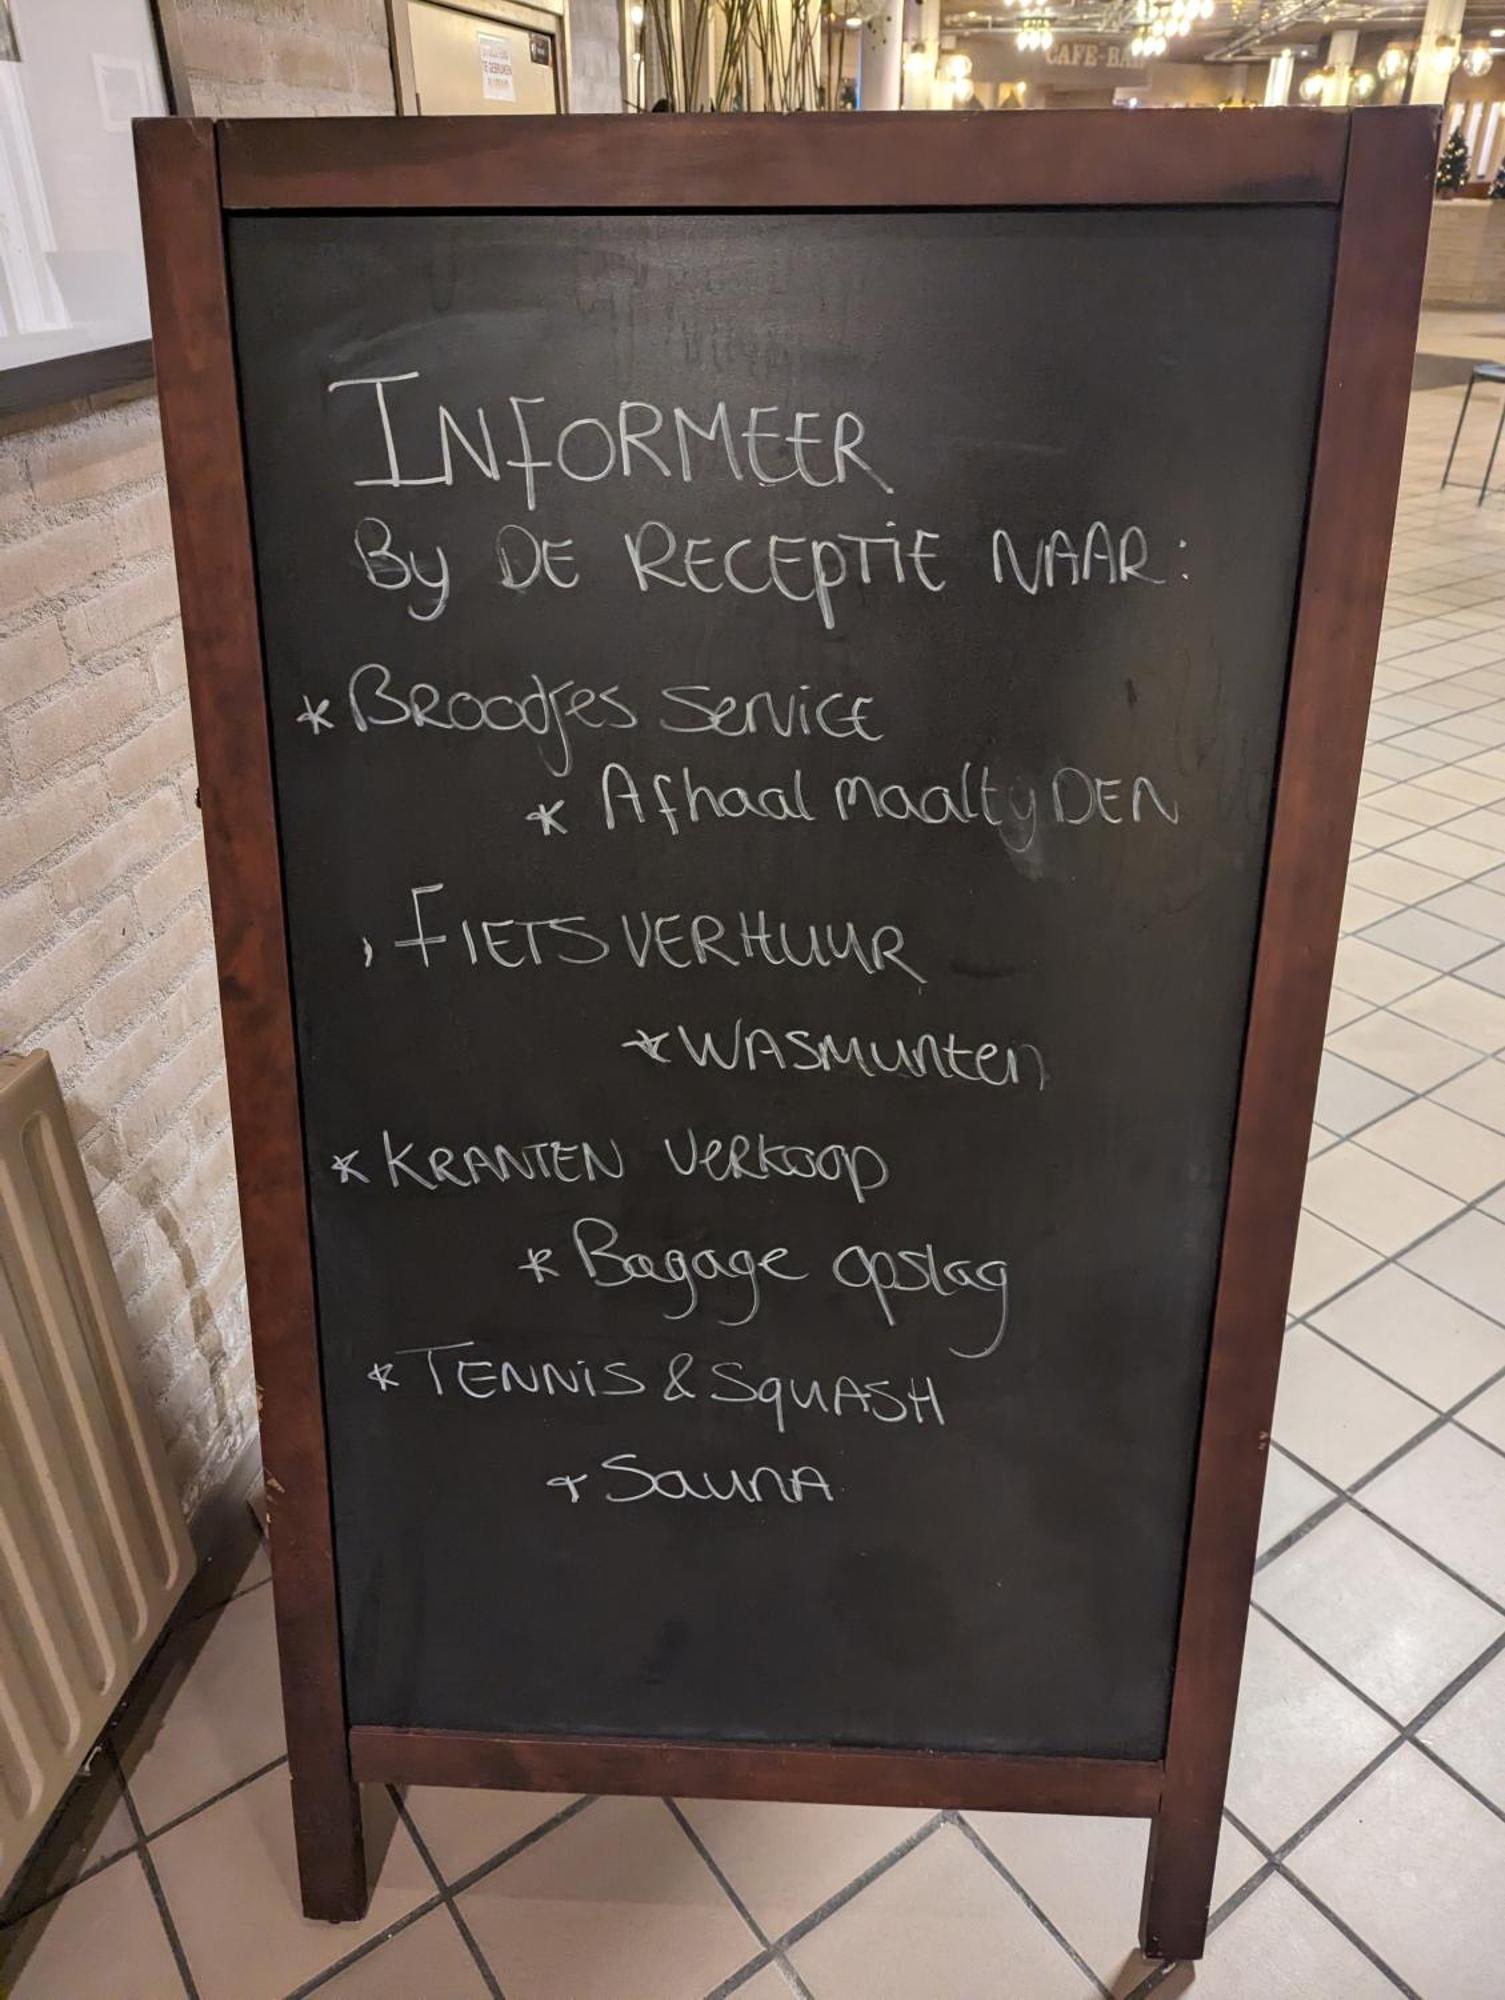 CAFE-BAR
INFORMEER
By DE RECEPTIE NAAR:
* BROODJES SERVICE
* Afhaal maaltyDEN
, FIETSVERHUUR
* WASMUNTEN
* KRANTEN VERKOOP
* Bagage opslag
* TENNIS & SQUASH
+ SAUNA